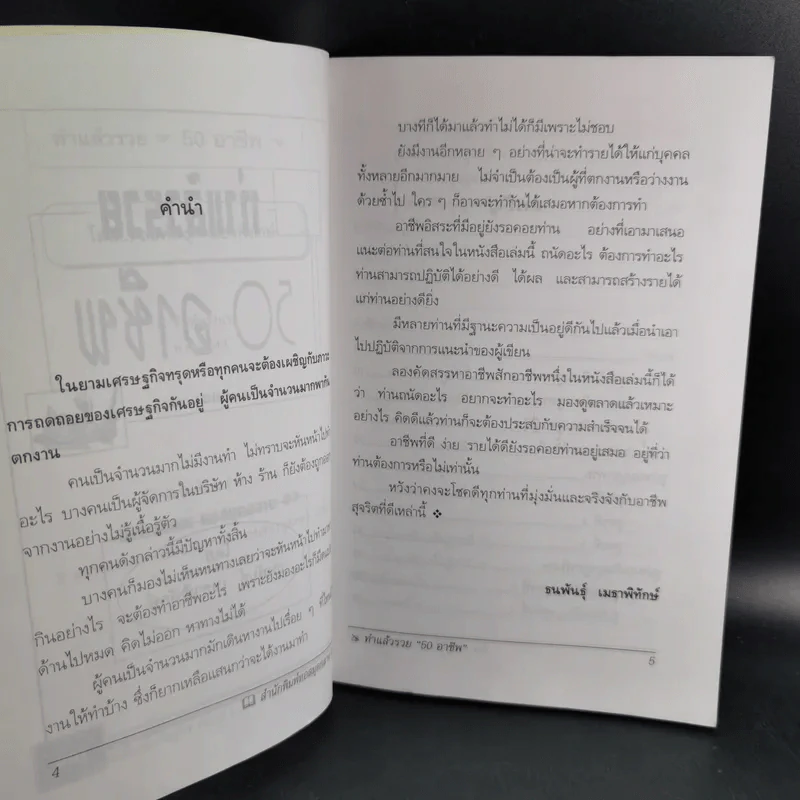 คำนำ
ในยามเศรษฐกิจทรุดหรือทุกคนจะต้องเผชิญกับภาวะ
การถดถอยของเศรษฐกิจกันอยู่ ผู้คนเป็นจำนวนมากพากัน
ตกงาน
คนเป็นจำนวนมากไม่มีงานทำ ไม่ทราบจะหันหน้าไป
อะไร บางคนเป็นผู้จัดการในบริษัท ห้าง ร้าน ก็ยังต้องถูก
จากงานอย่างไม่รู้เนื้อรู้ตัว
ทุกคนดังกล่าวนี้มีปัญหาทั้งสิ้น
บางคนก็มองไม่เห็นหนทางเลยว่าจะหันหน้าไปทำมาหา
กินอย่างไร จะต้องทำอาชีพอะไร เพราะยังมองอะไรก็มืด
ด้านไปหมด คิดไม่ออก หาทางไม่ได้
ผู้คนเป็นจำนวนมากมักเดินหางานไปเรื่อย ๆ
งานให้ทำบ้าง ซึ่งก็ยากเหลือแสนกว่าจะได้งานมาทำ
4
บางทีก็ได้มาแล้วทำไม่ได้ก็มีเพราะไม่ชอบ
ยังมีงานอีกหลาย ๆ อย่างที่น่าจะทำรายได้ให้แก่บุคคล
ทั้งหลายอีกมากมาย ไม่จำเป็นต้องเป็นผู้ที่ตกงานหรือว่างงาน
ด้วยซ้ำไป ใคร ๆ ก็อาจจะทำกันได้เสมอหากต้องการทำ
อาชีพอิสระที่มีอยู่ยังรอคอยท่าน อย่างที่เอามาเสนอ
แนะต่อท่านที่สนใจในหนังสือเล่มนี้ ถนัดอะไร ต้องการทำอะไร
ท่านสามารถปฏิบัติได้อย่างดี ได้ผล และสามารถสร้างรายได้
แก่ท่านอย่างดียิ่ง
มีหลายท่านที่มีฐานะความเป็นอยู่ดีกันไปแล้วเมื่อนำเอา
ไปปฏิบัติจากการแนะนำของผู้เขียน
ลองคัดสรรหาอาชีพสักอาชีพหนึ่งในหนังสือเล่มนี้ก็ได้
ว่า ท่านถนัดอะไร อยากจะทำอะไร มองดูตลาดแล้วเหมาะ
อย่างไร คิดดีแล้วท่านก็จะต้องประสบกับความสำเร็จจนได้
อาชีพที่ดี ง่าย รายได้ดียังรอคอยท่านอยู่เสมอ อยู่ที่ว่า
ท่านต้องการหรือไม่เท่านั้น
หวังว่าคงจะโชคดีทุกท่านที่มุ่งมั่นและจริงจังกับอาชีพ
สุจริตที่ดีเหล่านี้ ❖
ธนพันธุ์ เมธาพิทักษ์
ทำแล้วรวย "50 อาชีพ"
5